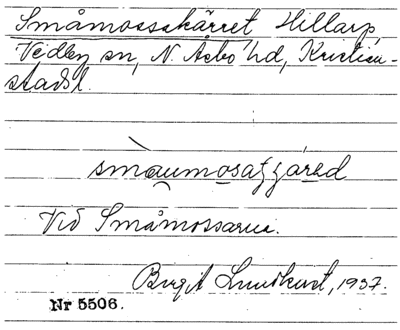 Småmosskärret Hillarp,
Vedby sn, N. Åsbo hd, Kristian-
stads l.
Vid Småmossarna.
Birgit Lundkvist, 1937.
Nr 5506.